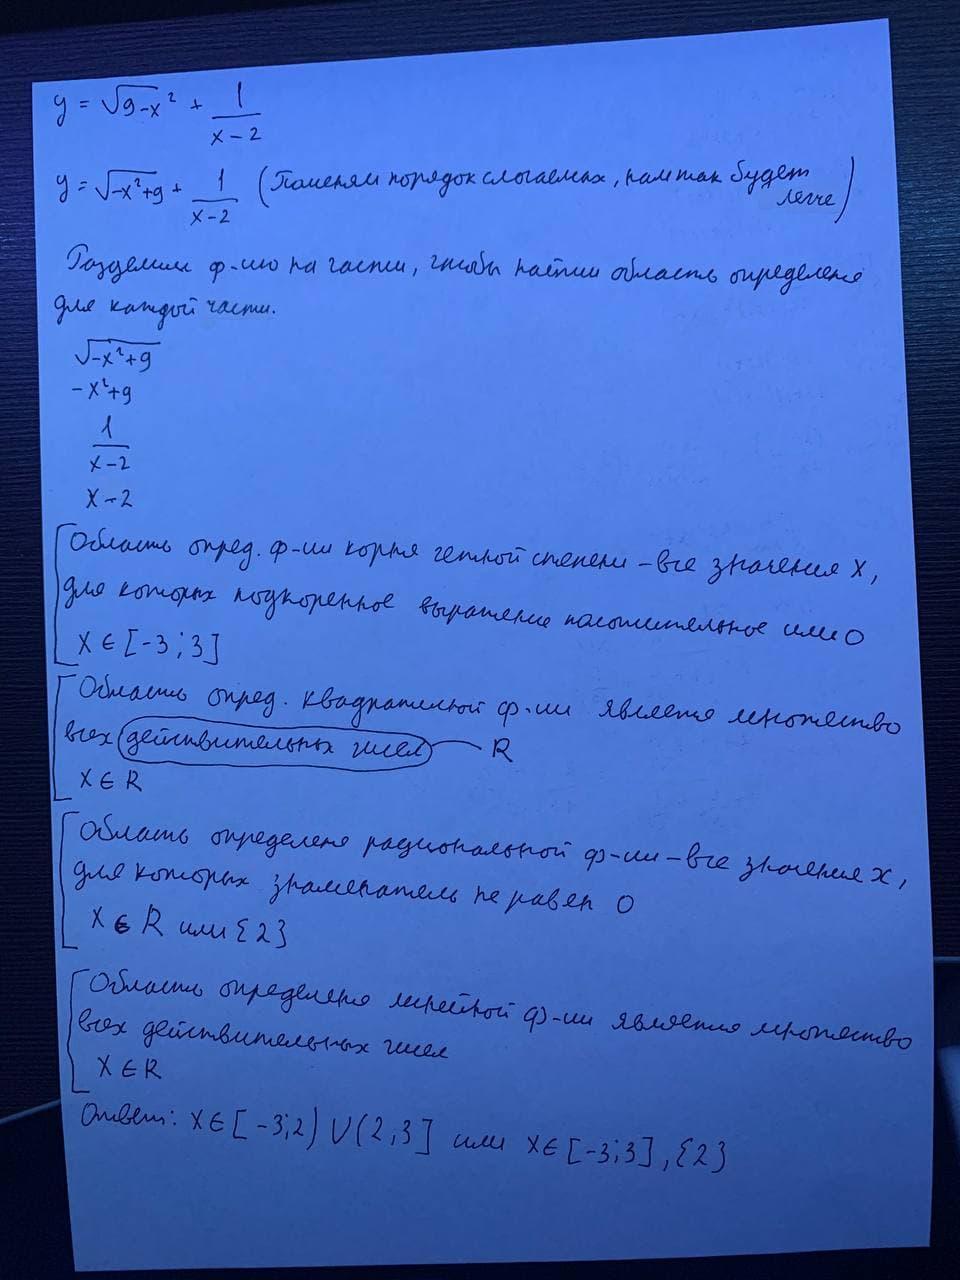 y = √9-x² + 1/(x-2)
y = √-x²+9 + 1/(x-2) (Поменяем порядок слагаемых, нам так будет
легче)
Разделим ф-ию на части, чтобы найти область определения
для каждой части.
√-x²+9
-x²+9
1/(x-2)
x-2
Область опред. ф-ии корня четной степени – все значения x,
для которых подкоренное выражение положительное или 0
x ∈ [-3; 3]
Область опред. квадратичной ф-ии является множество
всех действительных чисел — R
x ∈ R
Область определения рациональной ф-ии – все значения x,
для которых знаменатель не равен 0
x ∈ R или {2}
Область определения линейной ф-ии является множество
всех действительных чисел
x ∈ R
Ответ: x ∈ [-3;2) ∪ (2;3] или x ∈ [-3;3], {2}